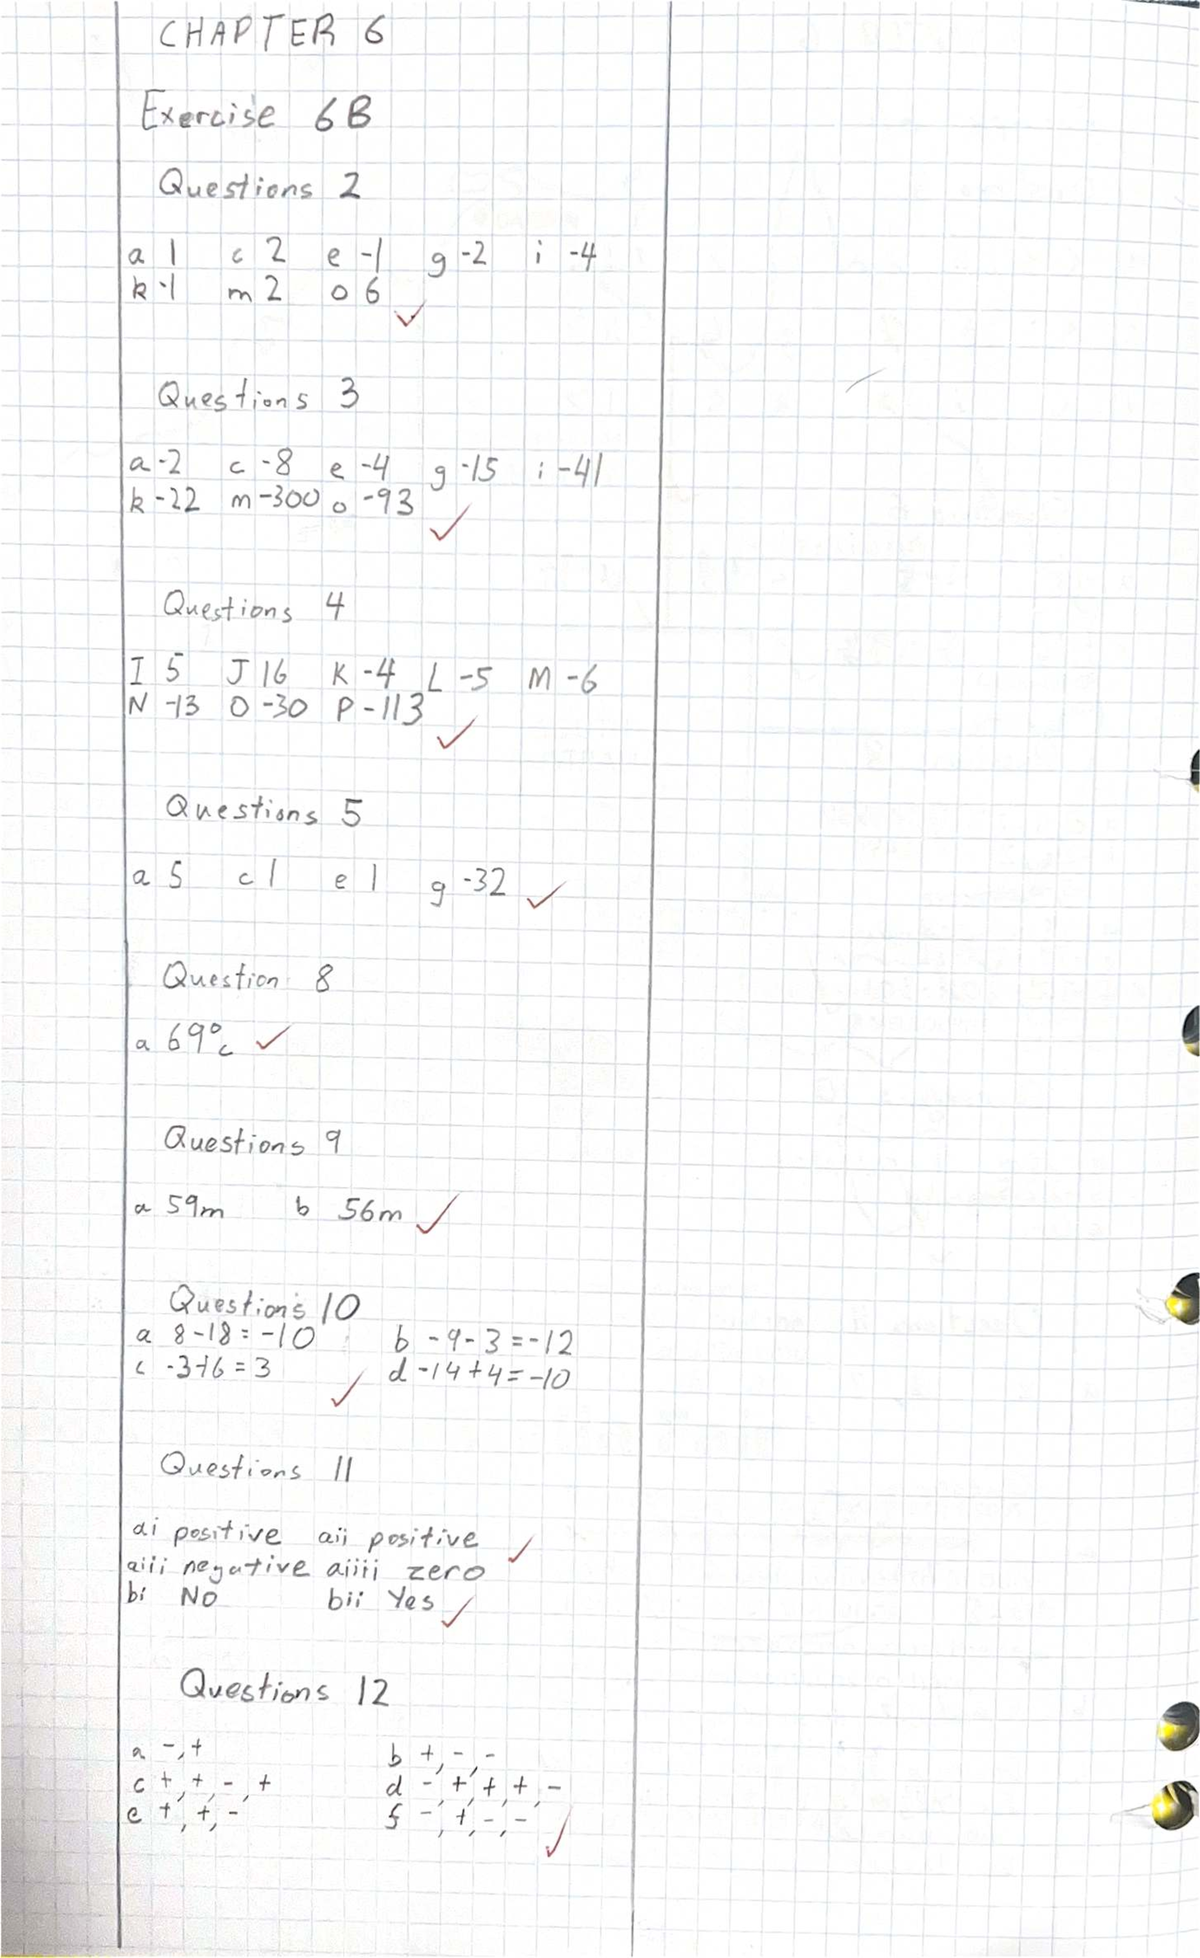 CHAPTER 6
Exercise 6B
Questions 2
a 1 c 2 e -1 g -2 i -4
k -1 m 2 o 6
Questions 3
a -2 c -8 e -4 g -15 i -41
k -22 m -300 o -93
Questions 4
I 5 J 16 K -4 L -5 M -6
N -13 O -30 P -113
Questions 5
a 5 c 1 e 1 g -32
Question 8
a 69°c
Questions 9
a 59m b 56m
Questions 10
a 8-18=-10 b -9-3=-12
c -3+6=3 d -14+4=-10
Questions 11
ai positive aii positive
aiii negative aiiii zero
bi No bii Yes
Questions 12
a -,+ b +,-,-
c +,+,-,+ d -,+,+,+,-
e +,+,- f -,+,-,-